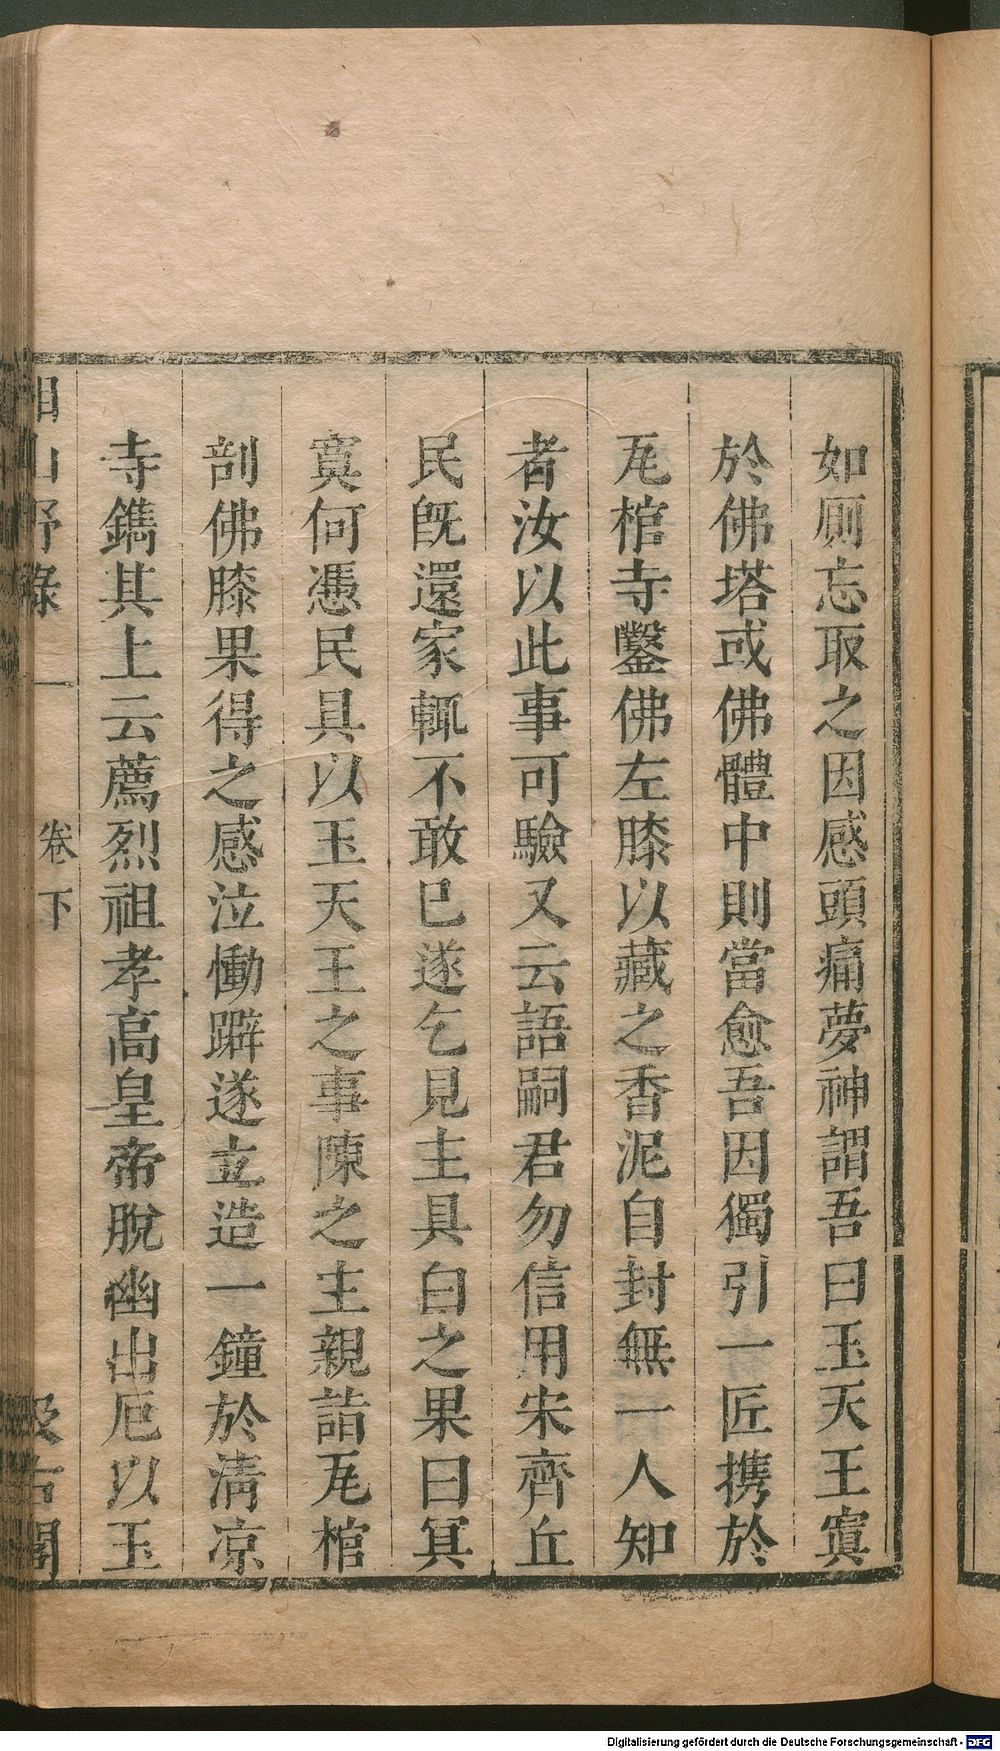 如厠忘取之因感頭痛夢神謂吾曰玉天王寘
於佛塔或佛體中則當愈吾因獨引一匠携於
瓦棺寺鑿佛左膝以藏之香泥自封無一人知
者汝以此事可驗又云語嗣君勿信用宋齊丘
民旣還家輒不敢已遂乞見主具白之果曰冥
寘何憑民具以玉天王之事陳之主親詣瓦棺
剖佛膝果得之感泣慟躃遂立造一鐘於淸凉
寺鐫其上云薦烈祖孝高皇帝脫幽出厄以玉
湘山野錄 一 卷下 汲古閣
Digitalisierung gefördert durch die Deutsche Forschungsgemeinschaft - DFG